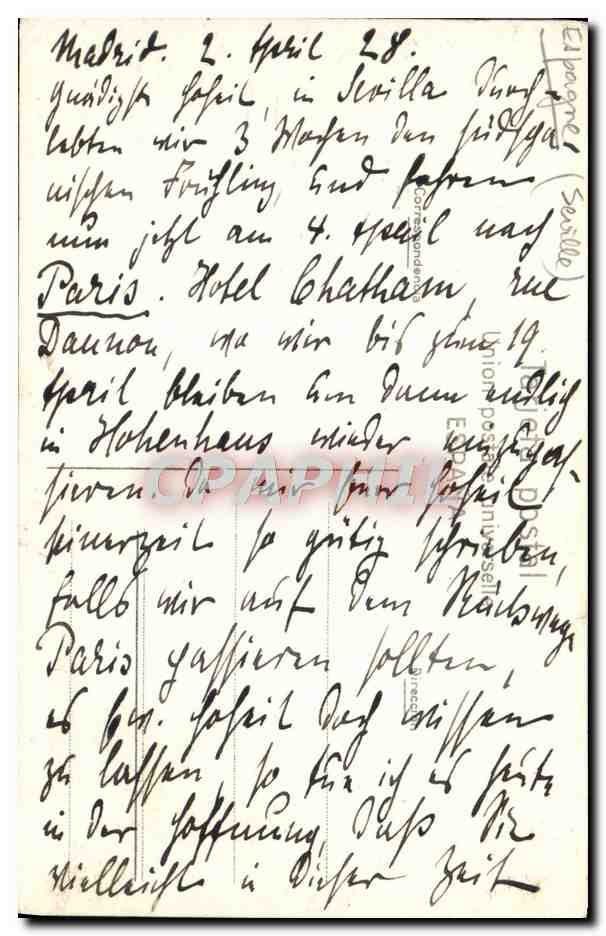 Madrid. 2. April 28.
Gnädigste Hoheit, in Sevilla durch-
lebten wir 3 Wochen den südspa-
nischen Frühling, und fahren
nun jetzt am 4. April nach
Paris. Hotel Chatham, rue
Daunou, wo wir bis zum 19.
April bleiben um dann endlich
in Hohenhaus wieder
sieren. Da mir Hoheit
seinerzeit so gütig schrieben,
falls wir auf dem Rückwege
Paris passieren sollten,
es Ew. Hoheit doch wissen
zu lassen, so tue ich es heute
in der Hoffnung, daß Sie
vielleicht in dieser Zeit
Espagne
(Seville)
Correspondencia
Tarjeta postal
Union postale universelle
ESPAÑA
Dirección
CPAPHIL